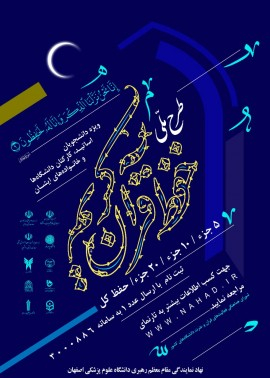 إِنَّا نَحْنُ نَزَّلْنَا الذِّكْرَ وَإِنَّا لَهُ لَحَافِظُونَ
طرح ملی
حفظ قرآن کریم
ویژه دانشجویان
اساتید، کارکنان دانشگاه‌ها
و خانواده‌های ایشان
۵ جزء / ۱۰ جزء / ۲۰ جزء / حفظ کل
ثبت نام با ارسال عدد ۱ به سامانه ۳۰۰۰۸۸۶
جهت کسب اطلاعات بیشتر به تارنمای
WWW.NAHAD.IR
مراجعه نمایید
نهاد نمایندگی مقام معظم رهبری دانشگاه علوم پزشکی اصفهان